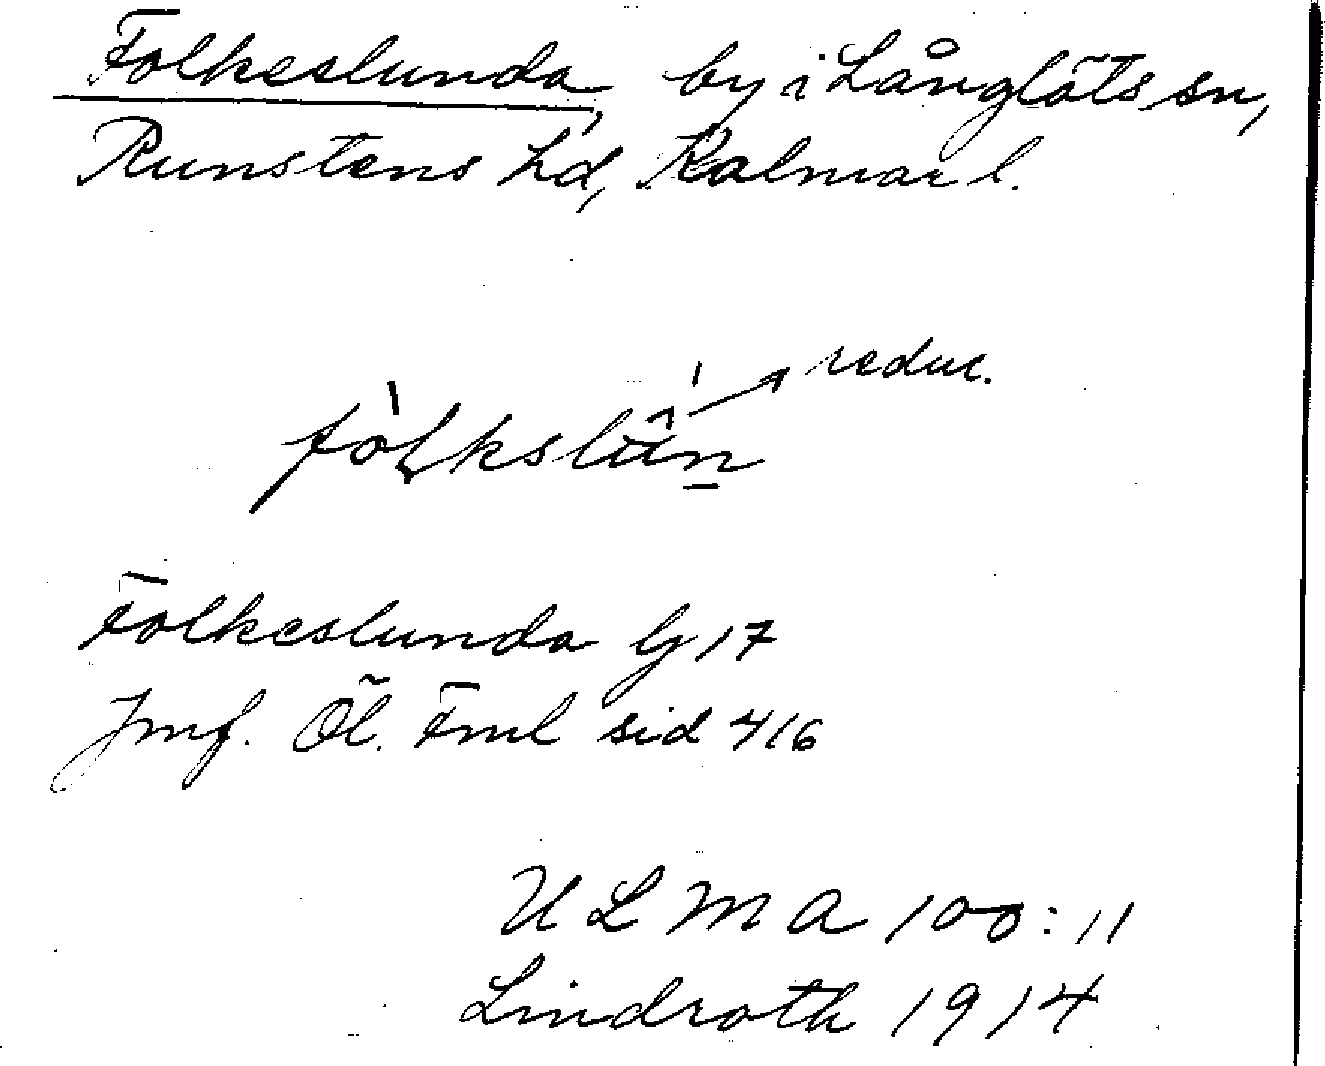 Folkeslunda, by i Långlöts sn,
Runstens hd, Kalmar l.
reduc.
Folkeslunda Gj 17
Jmf. Öl. Fml sid 416
ULMA 100:11
Lindroth 1914